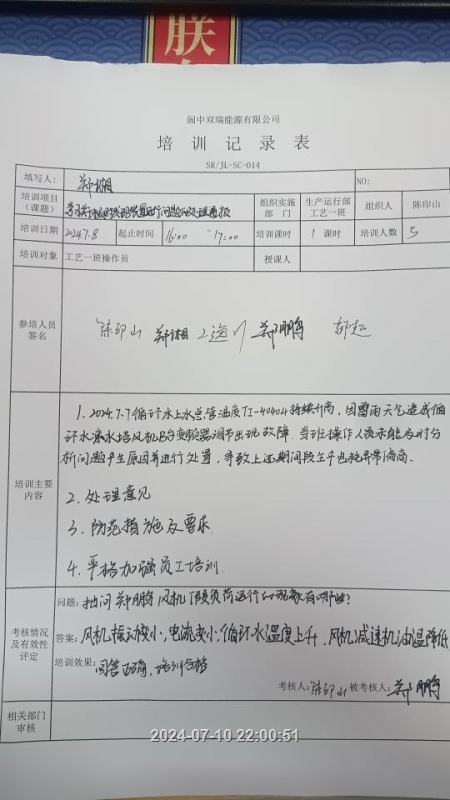 朕
阆中双瑞能源有限公司
培训记录表
SR/JL-SC-014
填写人： 郑湘 NO:
培训项目（课题） 组织实施部门 生产运行部工艺一班 组织人 陈印山
培训日期 2024.7.8 起止时间 16:00 ~17:00 培训课时 1 课时 培训人数 5
培训对象 工艺一班操作员 授课人
参培人员签名 陈印山 郑湘 郑鹏 郝起
培训主要内容
1. 2024.7.7循环水上水总管温度TI-40404持续升高，因雷雨天气造成循
环水凉水塔风机B台变频器调节出现故障，当班操作人员未能及时分
析问题产生原因并进行处置，导致上述期间段生产电耗异常偏高。
2. 处理意见
3. 防范措施及要求
4. 严格加强员工培训
考核情况及有效性评定
问题： 抽问郑鹏 风机假负荷运行的现象有哪些？
答案： 风机振动变小，电流变小，循环水温度上升，风机减速机油温降低
培训效果： 回答正确，培训合格
考核人： 陈印山 被考核人： 郑鹏
相关部门审核
2024-07-10 22:00:51